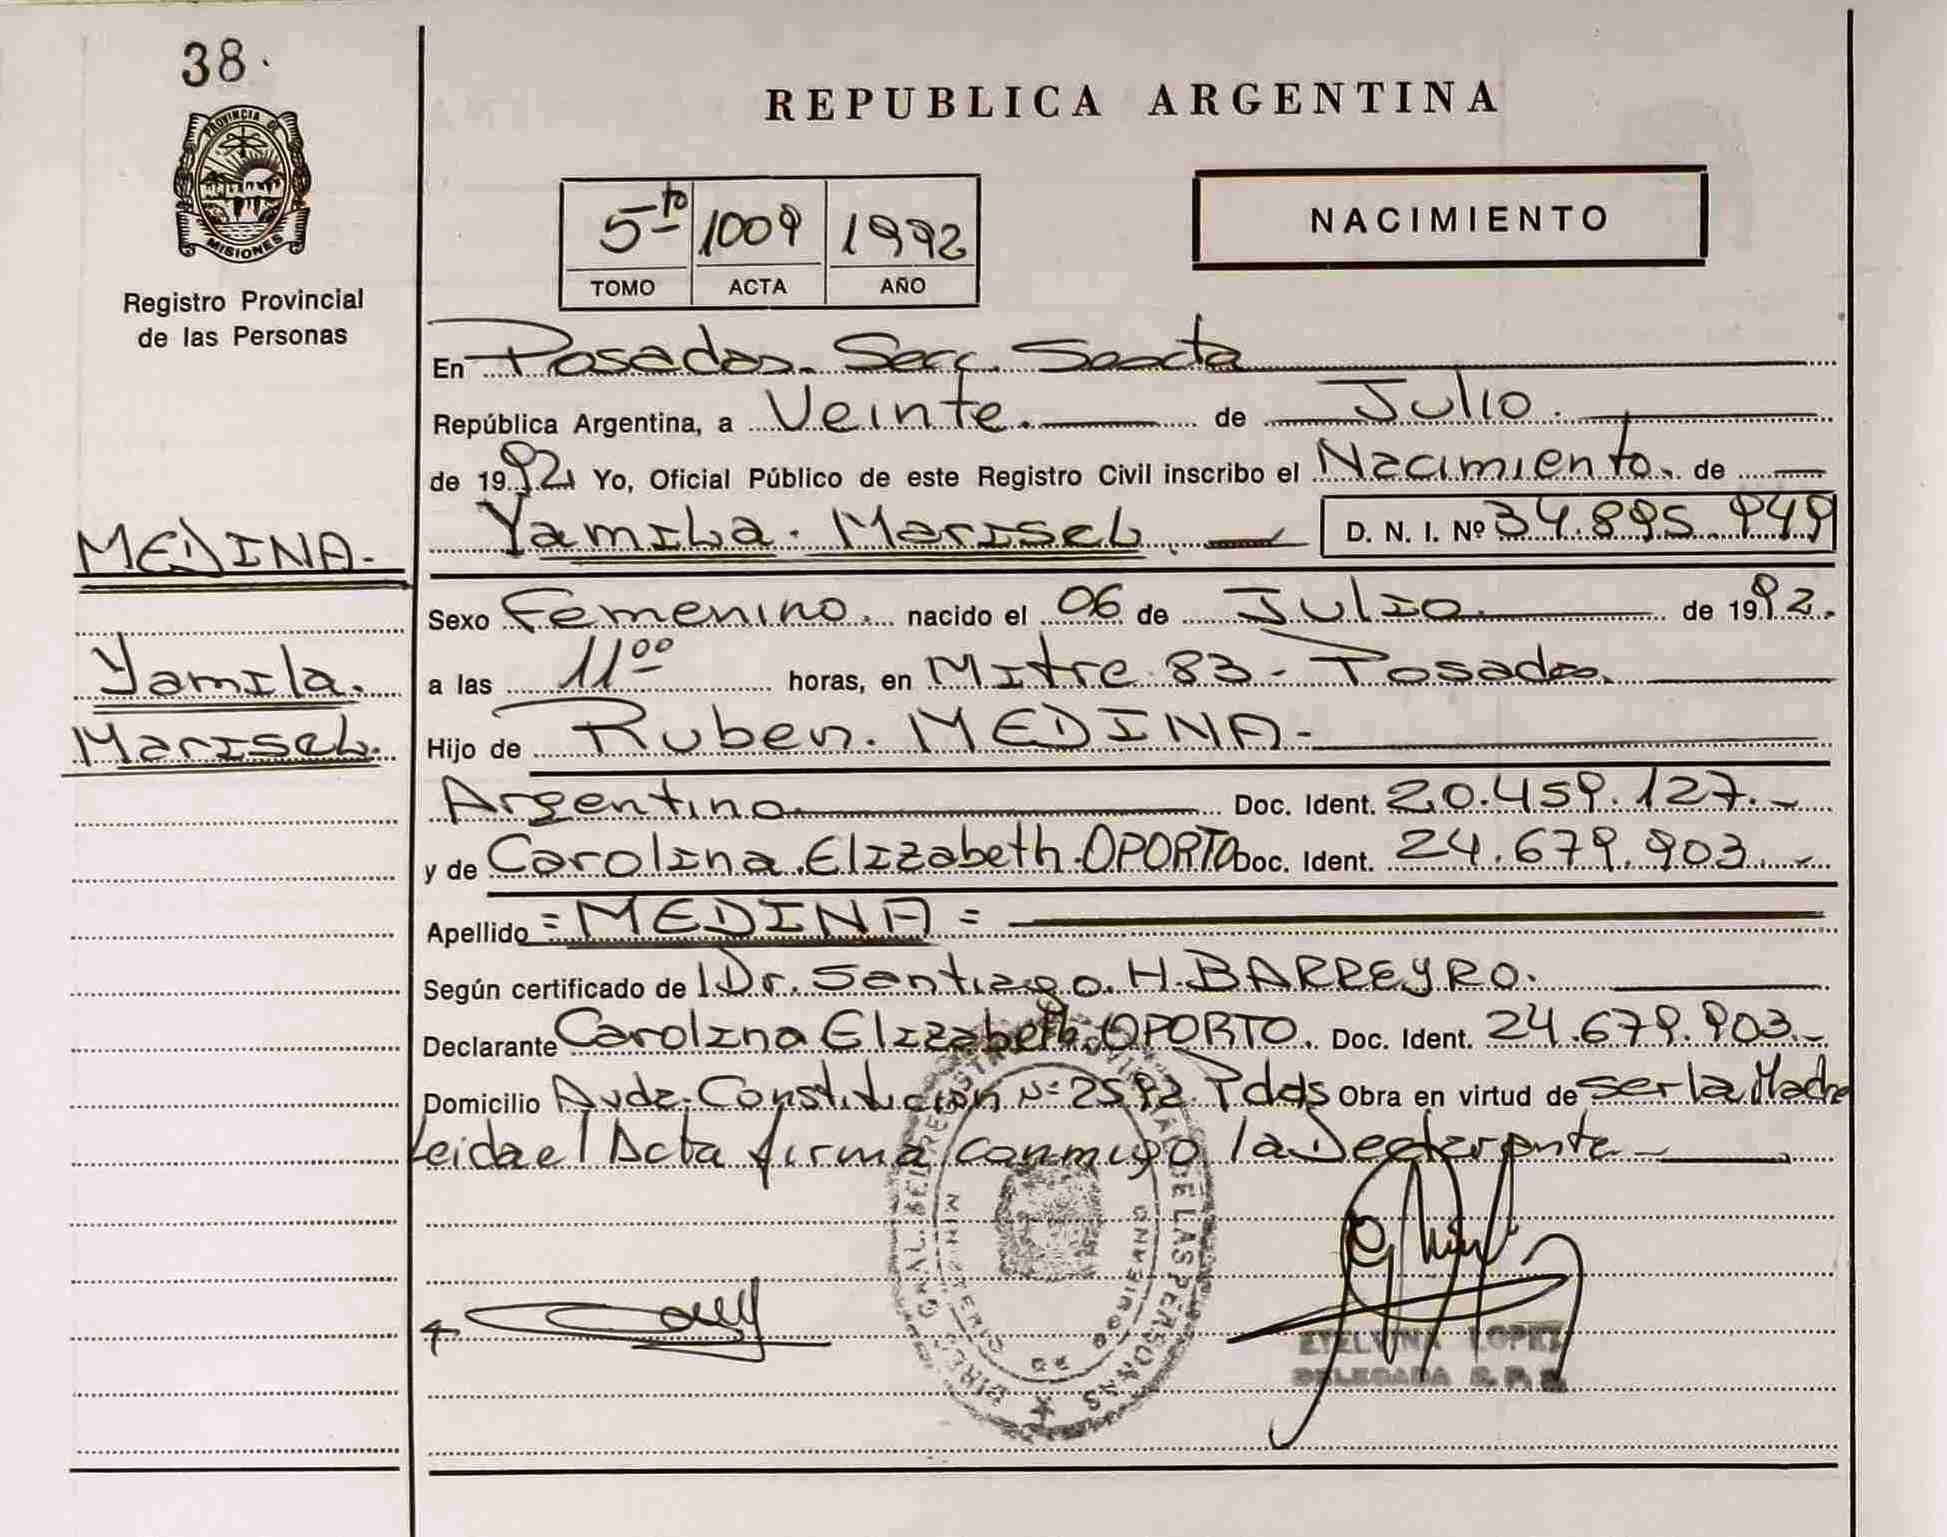 38.
PROVINCIA DE
MISIONES
Registro Provincial
de las Personas
MEDINA-
Yamila.
Marisel.
REPUBLICA ARGENTINA
5to 1009 1992
TOMO ACTA AÑO
NACIMIENTO
En Posadas. Secc. Sexta
República Argentina, a Veinte. de Julio.
de 1992 Yo, Oficial Público de este Registro Civil inscribo el Nacimiento. de
Yamila. Marisel. D. N. I. Nº 34.895.949
Sexo Femenino. nacido el 06 de Julio de 1992.
a las 11 00 horas, en Mitre 83 - Posadas.
Hijo de Ruben. MEDINA-
Argentino Doc. Ident. 20.459.127.-
y de Carolina Elizabeth OPORTO Doc. Ident. 24.679.903.-
Apellido = MEDINA =
Según certificado de Dr. Santiago. H. BARREYRO.
Declarante Carolina Elizabeth OPORTO. Doc. Ident. 24.679.903.-
Domicilio Avda. Constitución Nº 2592. Pdas Obra en virtud de ser la Madre
Leida el Acta firma conmigo la Declarante
DE LAS PERSONAS
MINISTERIO DE GOBIERNO
ETELVINA LOPEZ
DELEGADA